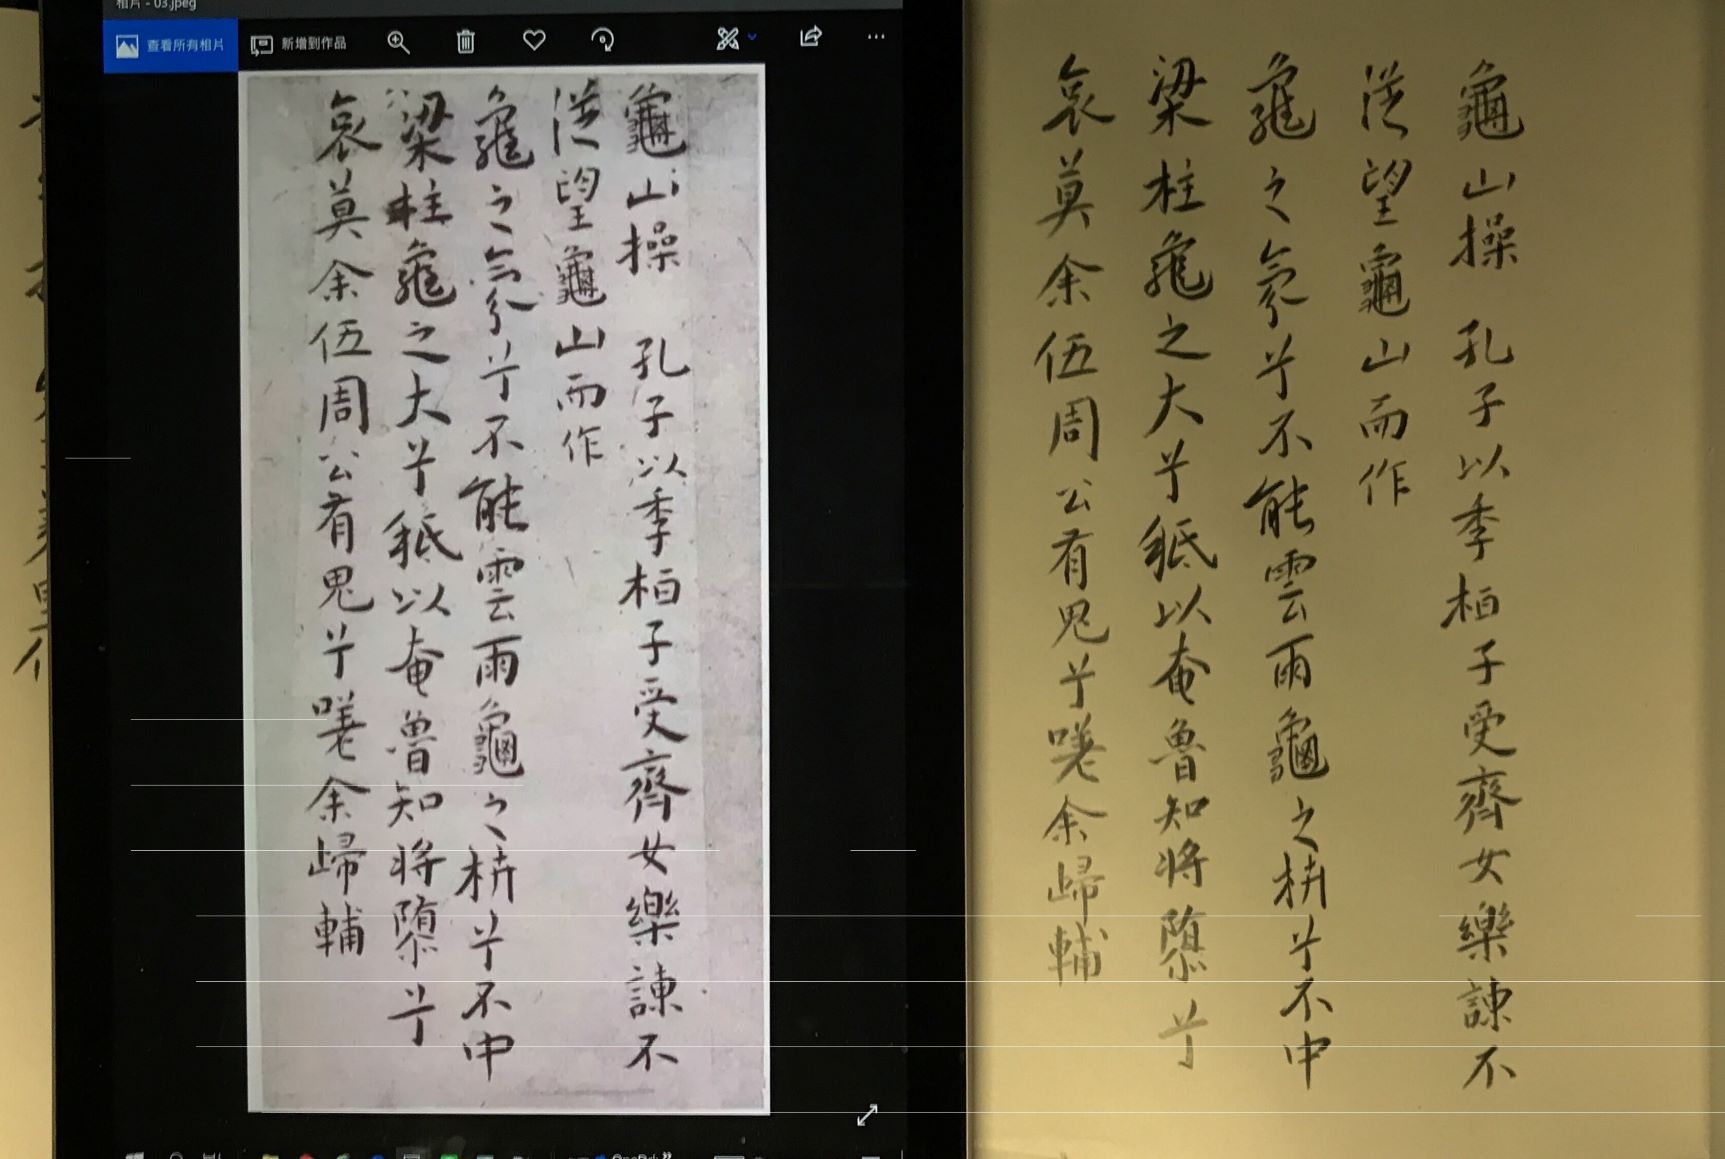 相片 - 03.jpeg
查看所有相片
新增到作品
龜山操 孔子以季柏子受齊女樂諫不
從望龜山而作
龜之氣兮不能雲雨龜之枿兮不中
梁柱龜之大兮秖以奄魯知將隳兮
哀莫余伍周公有鬼兮嗟余歸輔
龜山操 孔子以季柏子受齊女樂諫不
從望龜山而作
龜之氣兮不能雲雨龜之枿兮不中
梁柱龜之大兮秖以奄魯知將隳兮
哀莫余伍周公有鬼兮嗟余歸輔